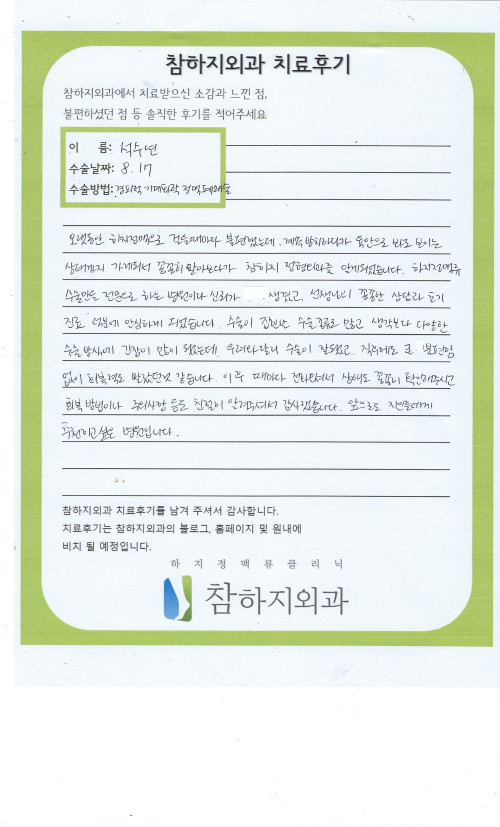 참하지외과 치료후기
참하지외과에서 치료받으신 소감과 느낀 점,
불편하셨던 점 등 솔직한 후기를 적어주세요
이 름: 석수연
수술날짜: 8. 17
수술방법: 경피적 기계화학 정맥폐쇄술
오랫동안 하지정맥으로 걸을때마다 불편했는데, 계속 방치하다가 육안으로 바로 보이는
상태까지 가게되서 꼼꼼히 알아보다가 참하지 정형외과를 알게되었습니다. 하지정맥류
수술만을 전문으로 하는 병원이라 신뢰가 생겼고, 선생님의 꼼꼼한 상담과 초기
진료 덕분에 안심하게 되었습니다. 수술이 간단한 수술 종류로 많고 생각보다 다양한
수술 방식에 긴장이 많이 됐는데, 우려와달리 수술이 잘됐고, 직후에도 큰 불편함
없이 회복력도 빨랐던것 같습니다. 이후 때마다 전화와서 상태도 꼼꼼히 확인해주시고
회복 방법이나 주의사항 등도 친절히 알려주셔서 감사했습니다. 앞으로도 지인들에게
추천하고싶은 병원입니다.
참하지외과 치료후기를 남겨 주셔서 감사합니다.
치료후기는 참하지외과의 블로그, 홈페이지 및 원내에
비치 될 예정입니다.
하지정맥류클리닉
참하지외과